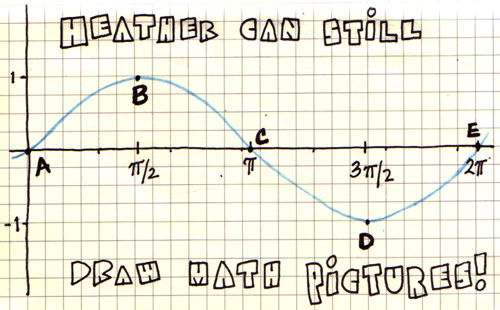 HEATHER CAN STILL
1
B
C
E
A
π/2
π
3π/2
2π
-1
D
DRAW MATH PICTURES!